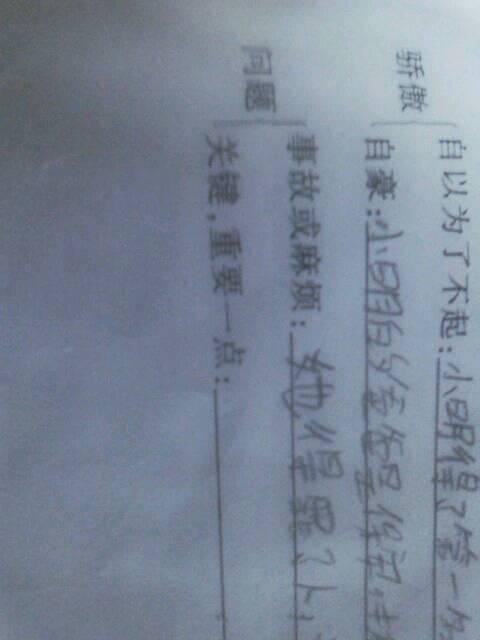 骄傲
自以为了不起：小明得了第一
自豪：小明的
问题
事故或麻烦：她得罪了人
关键，重要一点：